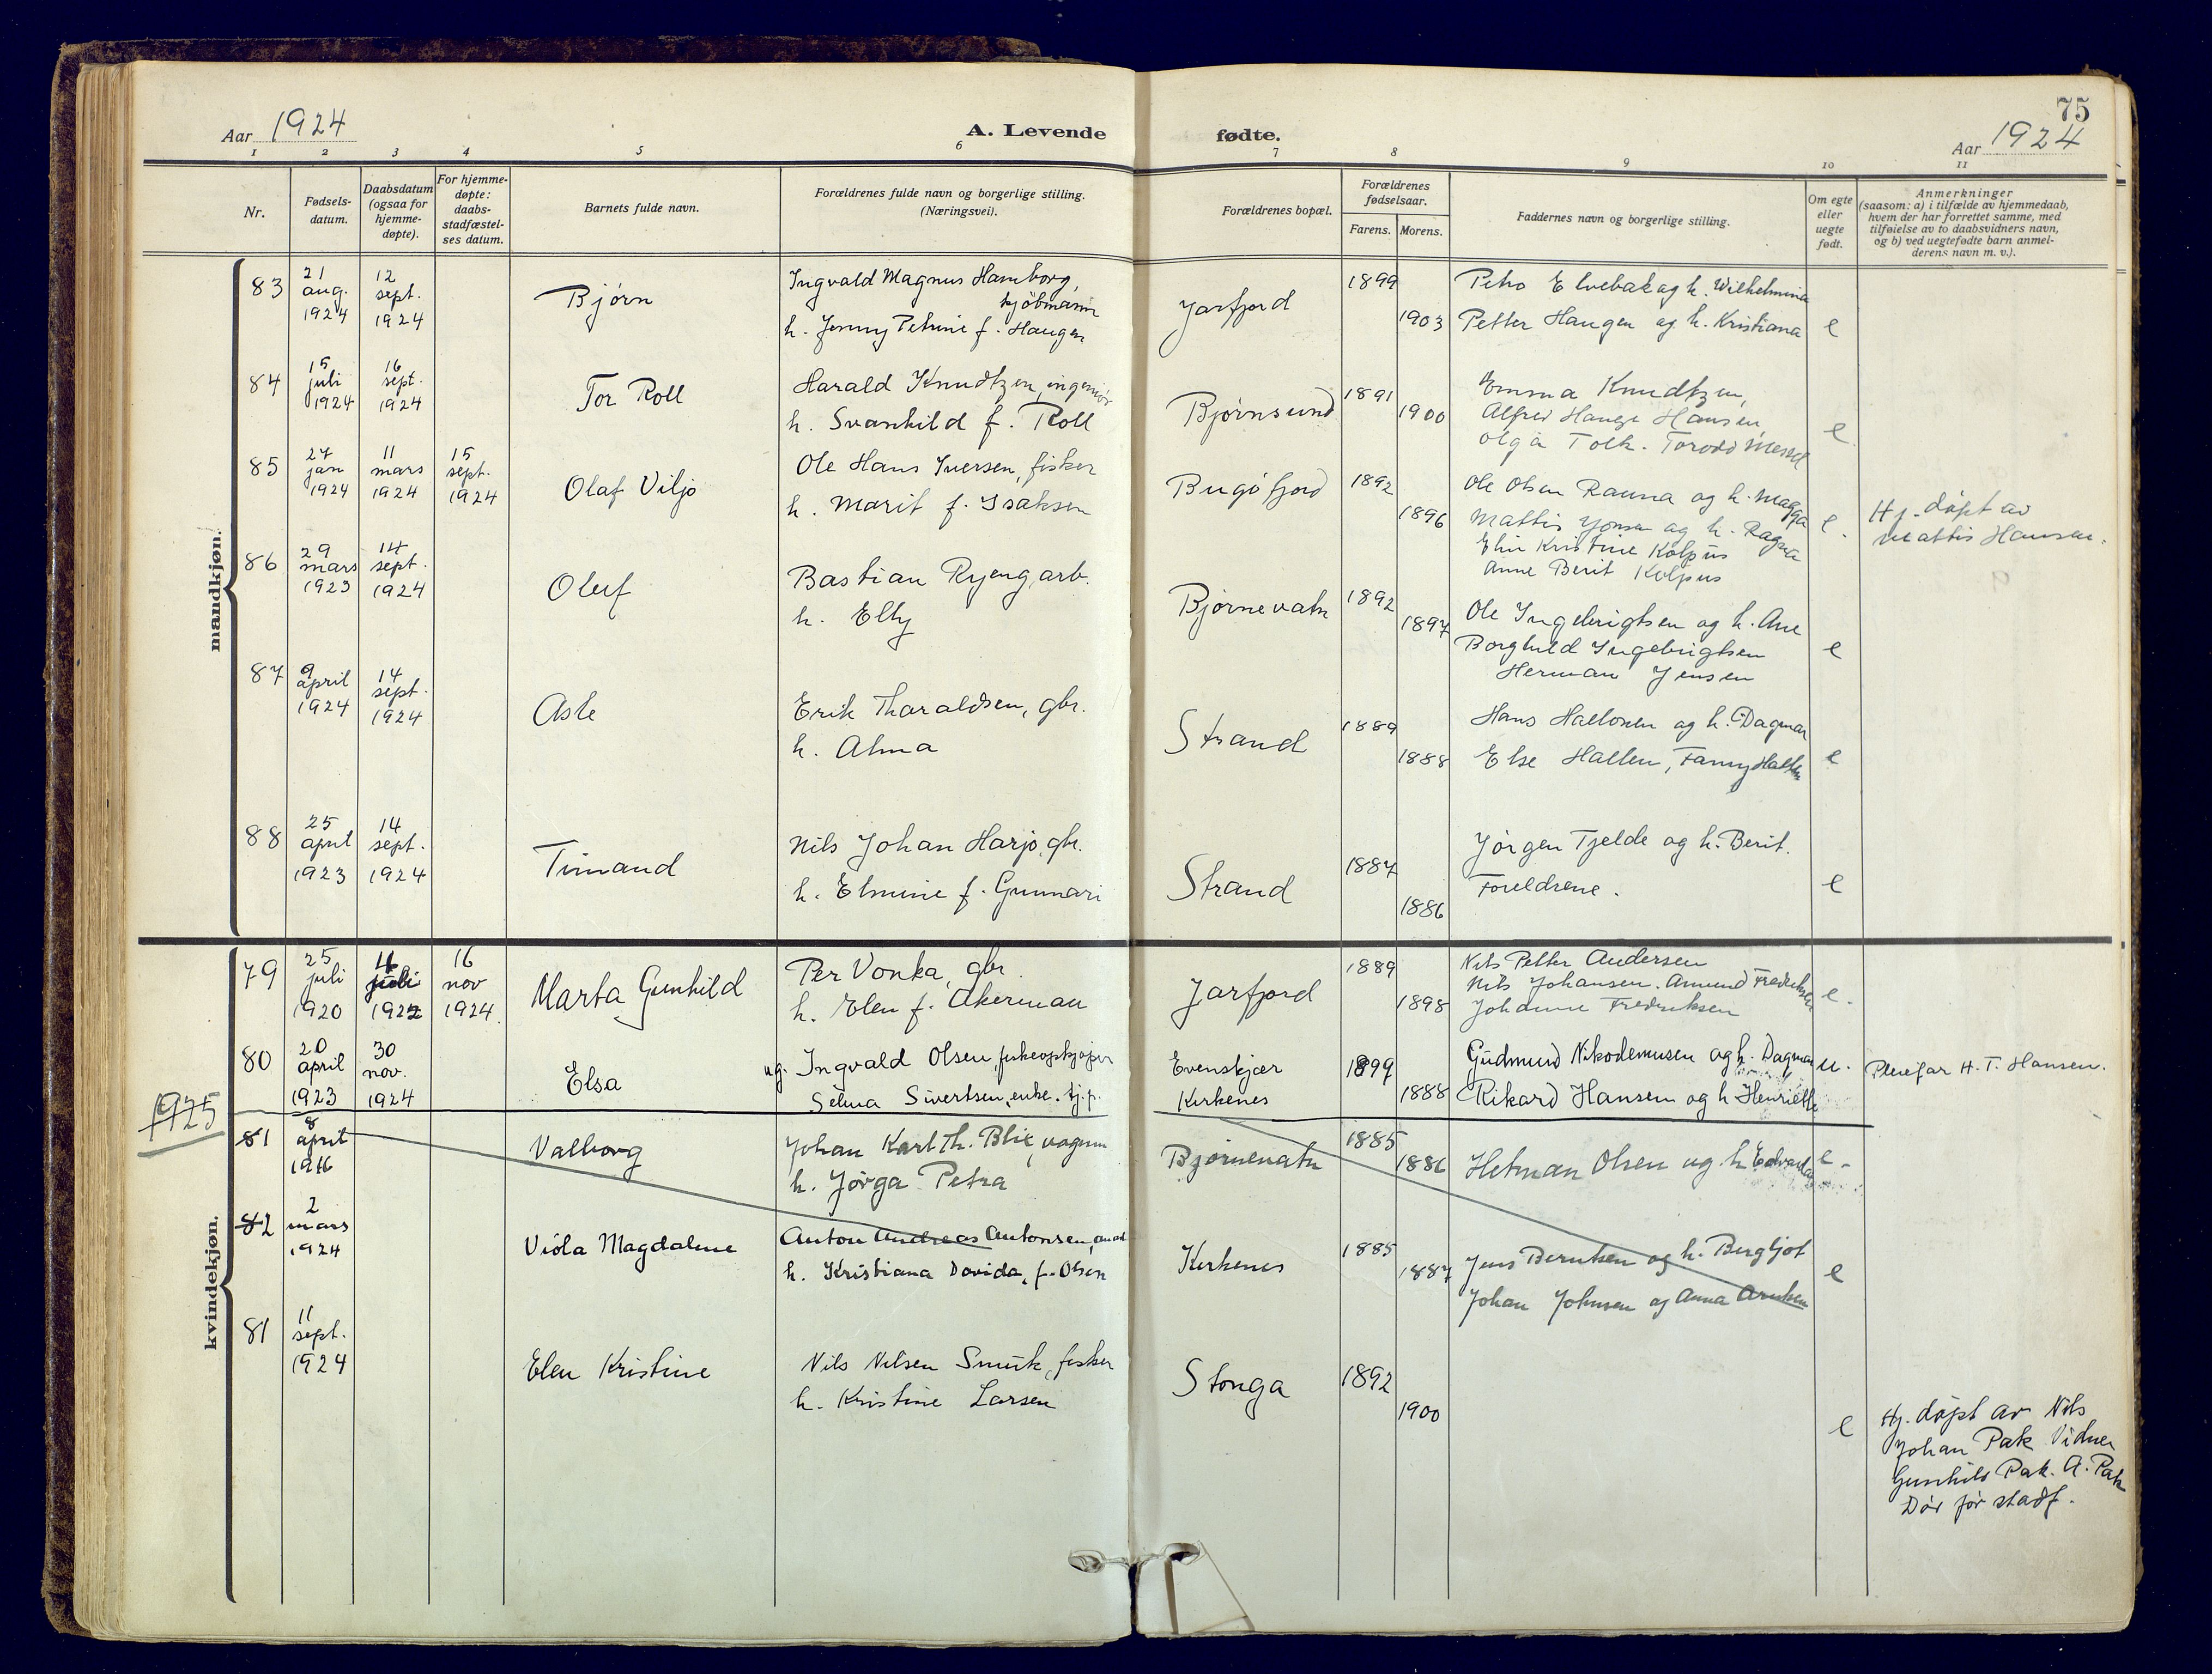 75
Aar 1924
A. Levende fødte.
Aar 1924
1 2 3 4 5 6 7 8 9 10 11
Nr.
Fødsels-
datum.
Daabsdatum
(ogsaa for
hjemme-
døpte).
For hjemme-
døpte:
daabs-
stadfæstel-
ses datum.
Barnets fulde navn.
Forældrenes fulde navn og borgerlige stilling.
(Næringsvei).
Forældrenes bopæl.
Forældrenes
fødselsaar.
Farens. Morens.
Faddernes navn og borgerlige stilling.
Om egte
eller
uegte
født.
Anmerkninger
(saasom: a) i tilfælde av hjemmedaab,
hvem der har forrettet samme, med
tilføielse av to daabsvidners navn,
og b) ved uegtefødte barn anmel-
derens navn m. v.).
mandkjøn.
83
21
aug.
1924
12
sept.
1924
Bjørn
Ingvald Magnus Hamborg,
kjøbmann
h. Jenny Petrine f. Haugen
Jarfjord
1899
1903
Petro Elvebak og h. Wilhelmina
Petter Haugen og h. Kristiana
e
84
15
juli
1924
16
sept.
1924
Tor Roll
Harald Knudtzen, ingeniør
h. Svanhild f. Roll
Bjørnsund
1891
1900
Emma Knudtzen,
Alfred Hauge Hansen,
Olga Tolk. Torodd
e
85
24
jan
1924
11
mars
1924
15
sept.
1924
Olaf Viljo
Ole Hans Iversen, fisker
h. Marit f. Isaksen
Bugøfjord
1892
1896
Ole Olsen Rauna og h. Magga
Mattis Jonsen og h. Ragna
Elin Kristine Kolpus
Anne Berit Kolpus
e.
Hj. døpt av
Mattis Hansen.
86
29
mars
1923
14
sept.
1924
Oluf
Bastian Ryeng, arb.
h. Elly
Bjørnevatn
1892
1897
Ole Ingebrigtsen og h. Ane
Borghild Ingebrigtsen
Herman Jensen
e
87
9
april
1924
14
sept.
1924
Asle
Erik Tharaldsen, gbr.
h. Alma
Strand
1889
1888
Hans Hallonen og h. Dagmar
Else Hallen, Fanny Hallen
e
88
25
april
1923
14
sept.
1924
Timand
Nils Johan Harjo, gbr.
h. Elmine f. Gunnari
Strand
1887
1886
Jørgen Tjelde og h. Berit.
Foreldrene.
e
kvindekjøn.
79
25
juli
1920
juli
1922
16
nov
1924.
Marta Gunhild
Per Vonka, gbr.
h. Elen f. Akerman
Jarfjord
1889
1898
Nils Petter Andersen
Nils Johansen. Amund Fredriksen
Johanne Fredriksen
e.
80
20
april
1923
30
nov.
1924
Elsa
ug. Ingvald Olsen, fiskeopkjøper
Selma Sivertsen, enke. tj.p.
Evenskjær
Kirkenes
1899
1888
Gudmund Nikodemusen og h. Dagmar
Rikard Hansen og h Henriette
u.
Pleiefar H. T. Hansen.
1925
81
8
april
1916
Valborg
Johan Karl Th. Blix, vognm
h. Jørga Petra
Bjørnevatn
1885
1886
Helman Olsen og h Edvarda
e-
82
2
mars
1924
Viola Magdalene
Anton Andreas Antonsen,
h. Kristiana Davida, f. Olsen
Kirkenes
1885
1887
Jens Berntsen og h. Bergljot
Johan Johnsen og Anna Arntsen
e
81
11
sept.
1924
Elen Kristine
Nils Nilsen Smuk, fisker
h. Kristine Larsen
Stonga
1892
1900
e
Hj. døpt av Nils
Johan Pak Vidner
Gunhild Pak. A. Pak
Dør før stadf.